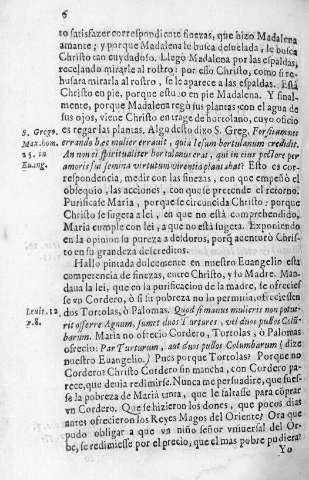 6
to satisfazer correspondiente finezas, que hizo Madalena
amante; y porque Madalena le busca desuelada, le busca
Christo tan cuydadoso. Llegò Madalena por las espaldas,
recelando mirarle al rostro: por esso Christo, como si re-
husara mirarla al rostro, se le aparece a las espaldas. Està
Christo en pie, porque estuuo en pie Madalena. Y final-
mente, porque Madalena regò sus plantas con el agua de
sus ojos, viene Christo en trage de hortolano, cuyo oficio
es regar las plantas. Algo desto dixo S. Greg. Forsitan nec
errando hæc mulier erravit, quia Iesum hortulanum credidit.
An non ei spiritualiter hortulanus erat, qui in eius pectore per
amoris sui semina virtutum virentia plantabat? Esto es cor-
respondencia, medir con las finezas, con que empeñò el
obsequio, las acciones, con que se pretende el retorno.
Purificase Maria, porque se circuncida Christo: porque
Christo se sugeta a lei, en que no està comprehendido,
Maria cumple con lei, a que no està sugeta. Exponiendo
en la opinion su pureza a desdoros, porq̃ acentò Chris-
to en su grandeza descreditos.
Hallo pintada dulcemente en nuestro Euangelio esta
competencia de finezas, entre Christo, y su Madre. Man-
daua la lei, que en la purificacion de la madre, se ofrecies-
se vn Cordero, ò si su pobreza no lo permitia, ofreciessen
dos Tortolas, ò Palomas. Quod si manus mulieris non potue-
rit offerre Agnum, sumet duos Turtures, vel duos pullos Colũ-
barum. Maria no ofrecio Cordero, Tortolas, ò Palomas
ofrecio: Par Turturum, aut duos pullos Columbarum (dize
nuestro Euangelio.) Pues porque Tortolas? Porque no
Cordero? Christo Cordero sin mancha, con Cordero pa-
rece, que deuia redimirse. Nunca me persuadire, que fues-
se la pobreza de Maria tanta, que le faltasse para cõprar
vn Cordero. Que se hizieron los dones, que pocos dias
antes ofrecieron los Reyes Magos del Oriente? Ora que
pudo obligar a que vn niño señor vniuersal del Or-
be, se redimiesse por el precio, que el mas pobre pudiera?
Yo
S. Grego.
Max. hom.
25. in
Euang.
Leuit. 12.
v. 8.